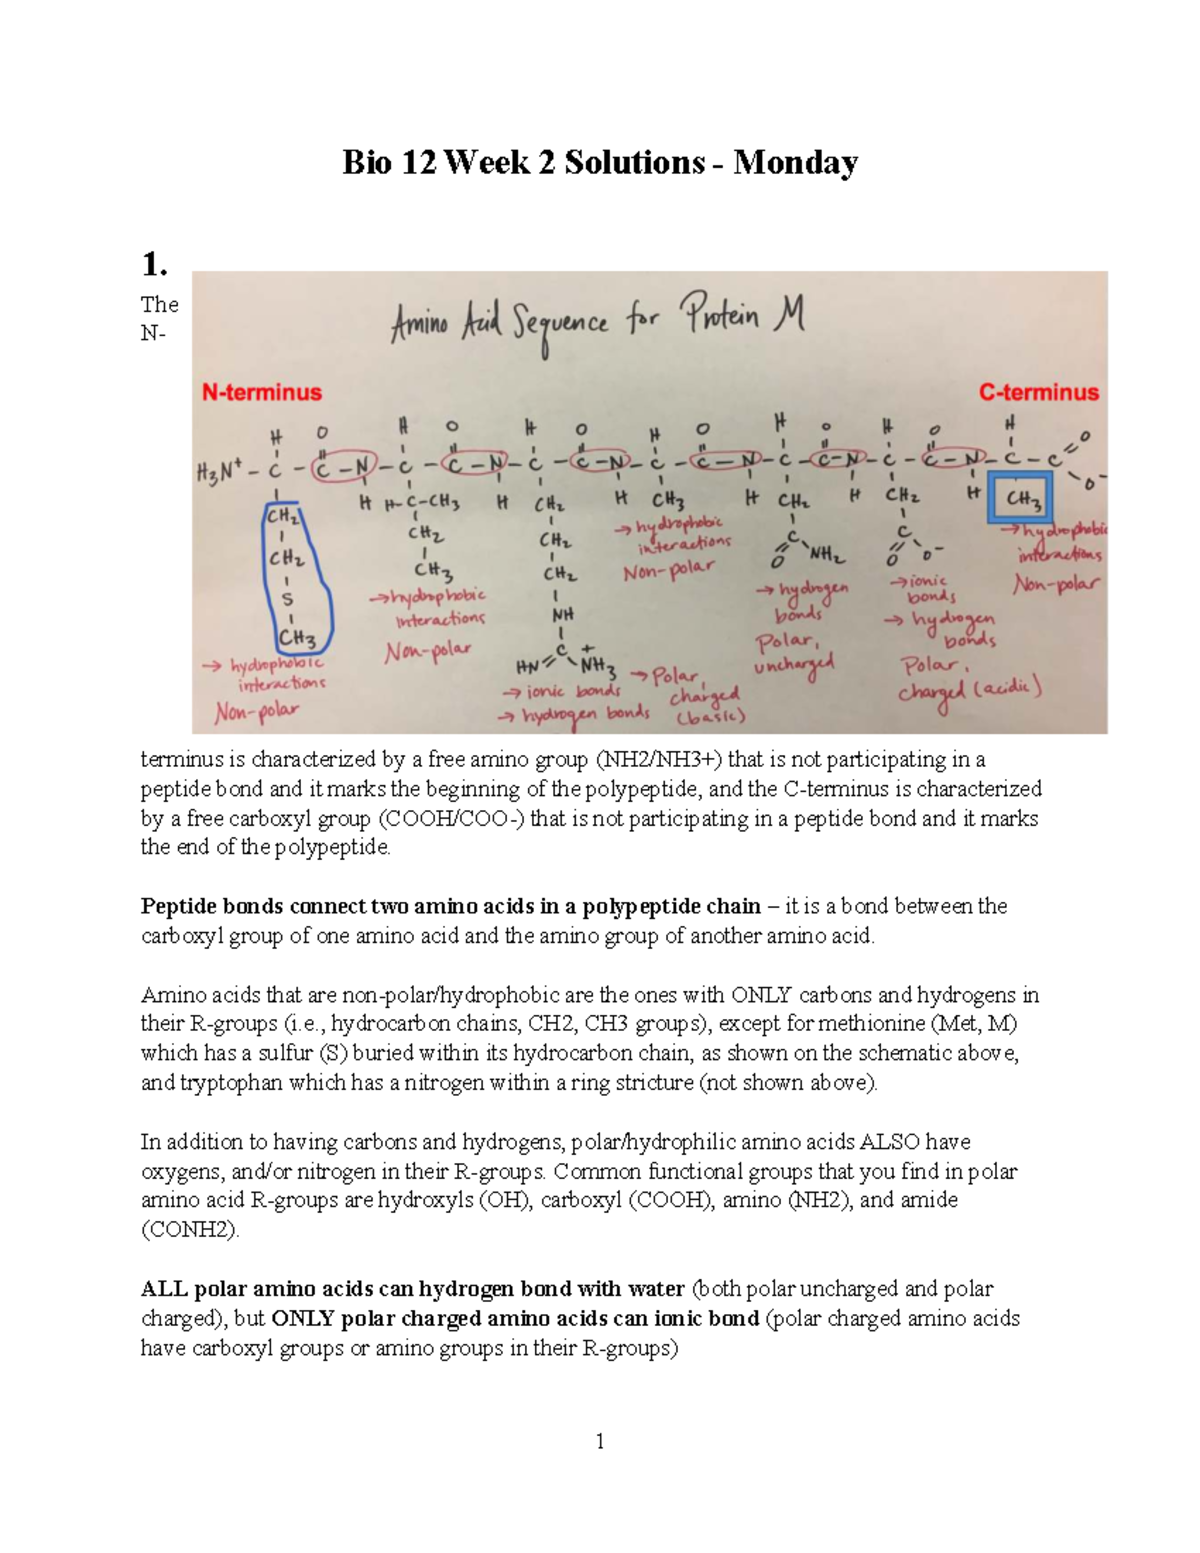 Bio 12 Week 2 Solutions - Monday
1.
The
N-
Amino Acid Sequence for Protein M
N-terminus
C-terminus
H O H O H O H O H O H O H
H₃N⁺ – C – C – N – C – C – N – C – C – N – C – C – N – C – C – N – C – C – N – C – C O
O⁻
CH₂ H H-C-CH₃ H CH₂ H CH₃ H CH₂ H CH₂ H CH₃
CH₂ CH₂ CH₂ C C
S CH₃ CH₂ O NH₂ O O⁻
CH₃ NH
C
HN NH₃ +
→ hydrophobic
interactions
Non-polar
→ hydrophobic
interactions
Non-polar
→ ionic bonds
→ hydrogen bonds
→ Polar,
charged
(basic)
→ hydrophobic
interactions
Non-polar
→ hydrogen
bonds
Polar,
uncharged
→ ionic
bonds
→ hydrogen
bonds
Polar,
charged (acidic)
→ hydrophobic
interactions
Non-polar
terminus is characterized by a free amino group (NH2/NH3+) that is not participating in a
peptide bond and it marks the beginning of the polypeptide, and the C-terminus is characterized
by a free carboxyl group (COOH/COO-) that is not participating in a peptide bond and it marks
the end of the polypeptide.
Peptide bonds connect two amino acids in a polypeptide chain – it is a bond between the
carboxyl group of one amino acid and the amino group of another amino acid.
Amino acids that are non-polar/hydrophobic are the ones with ONLY carbons and hydrogens in
their R-groups (i.e., hydrocarbon chains, CH2, CH3 groups), except for methionine (Met, M)
which has a sulfur (S) buried within its hydrocarbon chain, as shown on the schematic above,
and tryptophan which has a nitrogen within a ring stricture (not shown above).
In addition to having carbons and hydrogens, polar/hydrophilic amino acids ALSO have
oxygens, and/or nitrogen in their R-groups. Common functional groups that you find in polar
amino acid R-groups are hydroxyls (OH), carboxyl (COOH), amino (NH2), and amide
(CONH2).
ALL polar amino acids can hydrogen bond with water (both polar uncharged and polar
charged), but ONLY polar charged amino acids can ionic bond (polar charged amino acids
have carboxyl groups or amino groups in their R-groups)
1